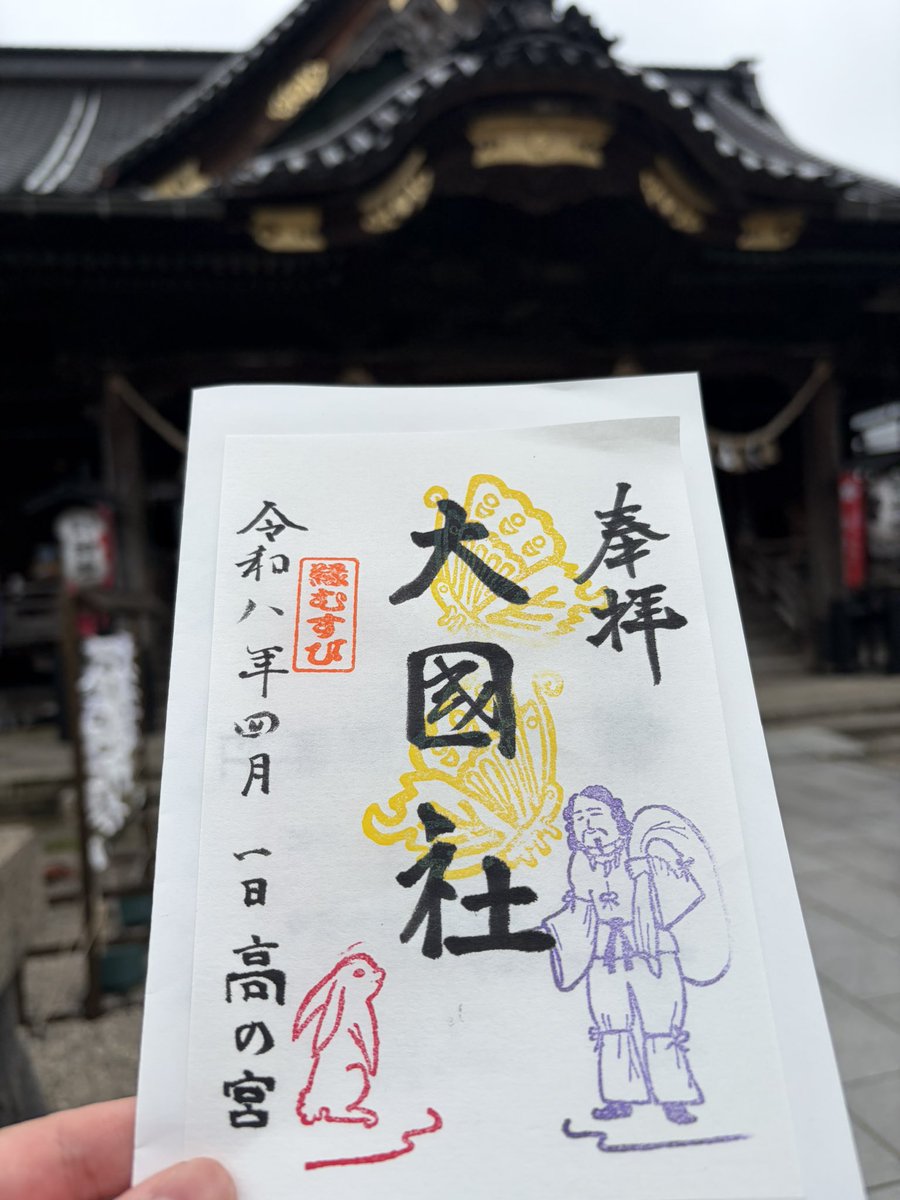 奉拝
大國社
縁むすび
令和八年四月一日高の宮